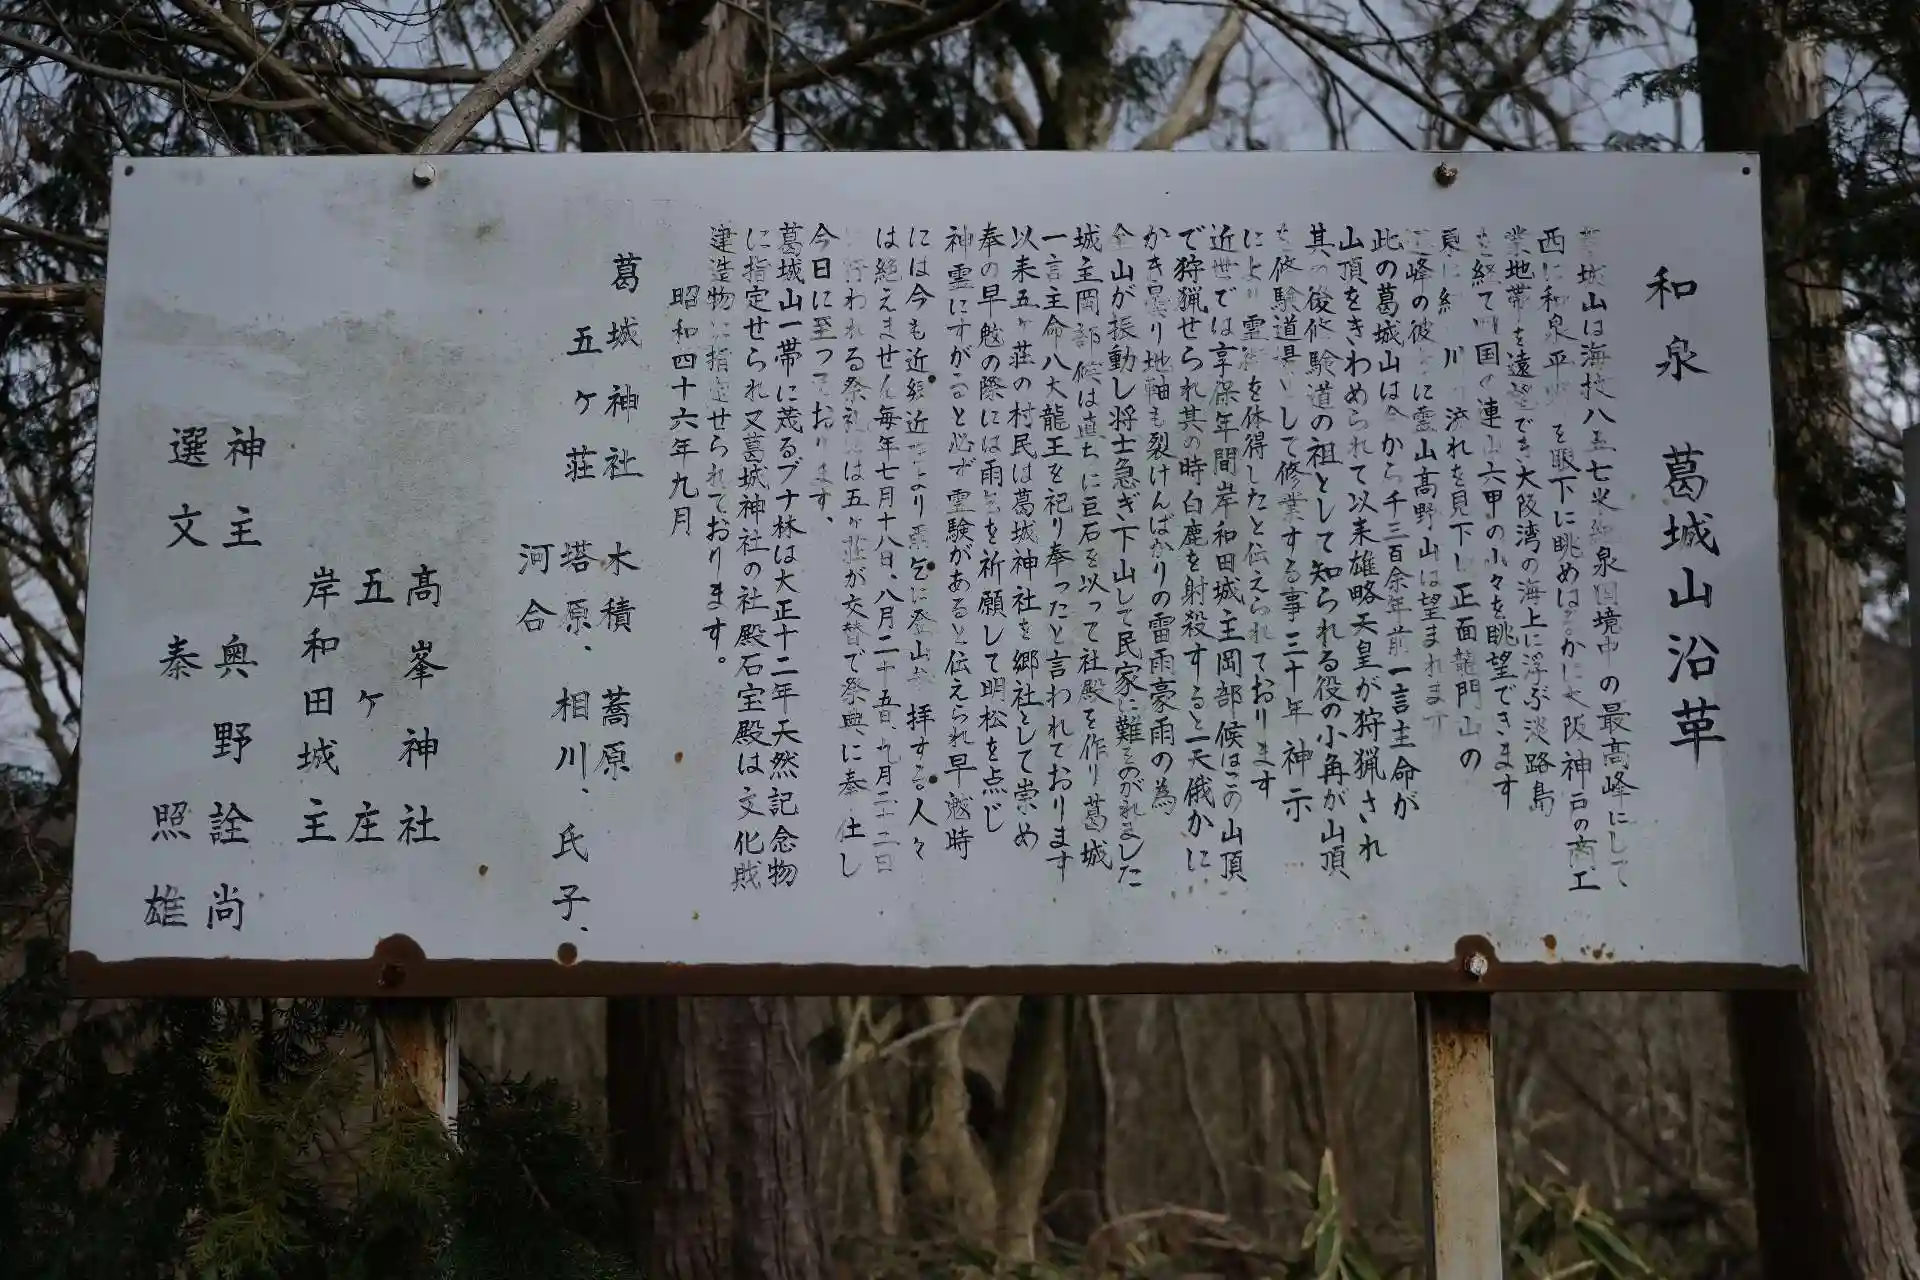 和泉 葛城山沿革
城山は海抜八五七米 泉国境中の最高峰にして
西に和泉平 を眼下に眺めは かに大阪神戸の商工
業地帯を遠望でき大阪湾の海上に浮ぶ淡路島
を経て四国の連山六甲の山々を眺望できます
東に紀 川の流れを見下し正面龍門山の
峰の彼 に霊山高野山は望まれます
此の葛城山は今から千三百余年前一言主命が
山頂をきわめられて以来雄略天皇が狩猟され
其の後修験道の祖として知られる役の小角が山頂
を修験道場として修業する事三十年神示
により霊術を体得したと伝えられております
近世では享保年間岸和田城主岡部候はこの山頂
で狩猟せられ其の時白鹿を射殺すると一天俄かに
かき曇り地軸も裂けんばかりの雷雨豪雨の為
全山が振動し将士急ぎ下山して民家に難をのがれました
城主岡部候は直ちに巨石を以って社殿を作り葛城
一言主命八大龍王を祀り奉ったと言われております
以来五ヶ荘の村民は葛城神社を郷社として崇め
奉の早魃の際には雨乞を祈願して明松を点じ
神霊にすがると必ず霊験があると伝えられ早魃時
には今も近郷近 より雨乞に登山参拝する人々
は絶えません毎年七月十八日、八月二十五日、九月二十二日
に行われる祭礼 は五ヶ荘が交替で祭典に奉仕し
今日に至っております、
葛城山一帯に茂るブナ林は大正十二年天然記念物
に指定せられ又葛城神社の社殿石宝殿は文化財
建造物に指定せられております。
昭和四十六年九月
葛城神社 木積 蕎原
五ヶ荘 塔原、相川、氏子、
河合
高峯神社
五ヶ庄
岸和田城主
神主 奥野詮尚
選文 秦照雄